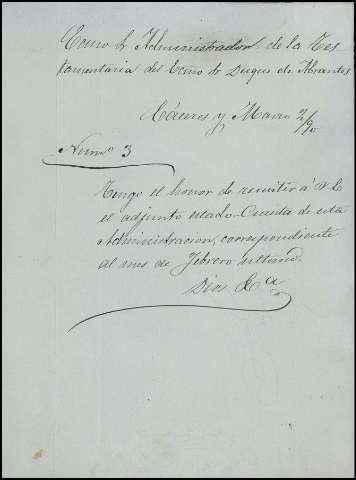 Excmo Sr Administrador de la Tes
tamentaria del Excmo Sr Duque de Abrantes
Cáceres y Marzo 2/90
Numo 3
Tengo el honor de remitir á V. E.
el adjunto estado-Cuenta de esta
Administracion, correspondiente
al mes de Febrero ultimo.
Dios &a